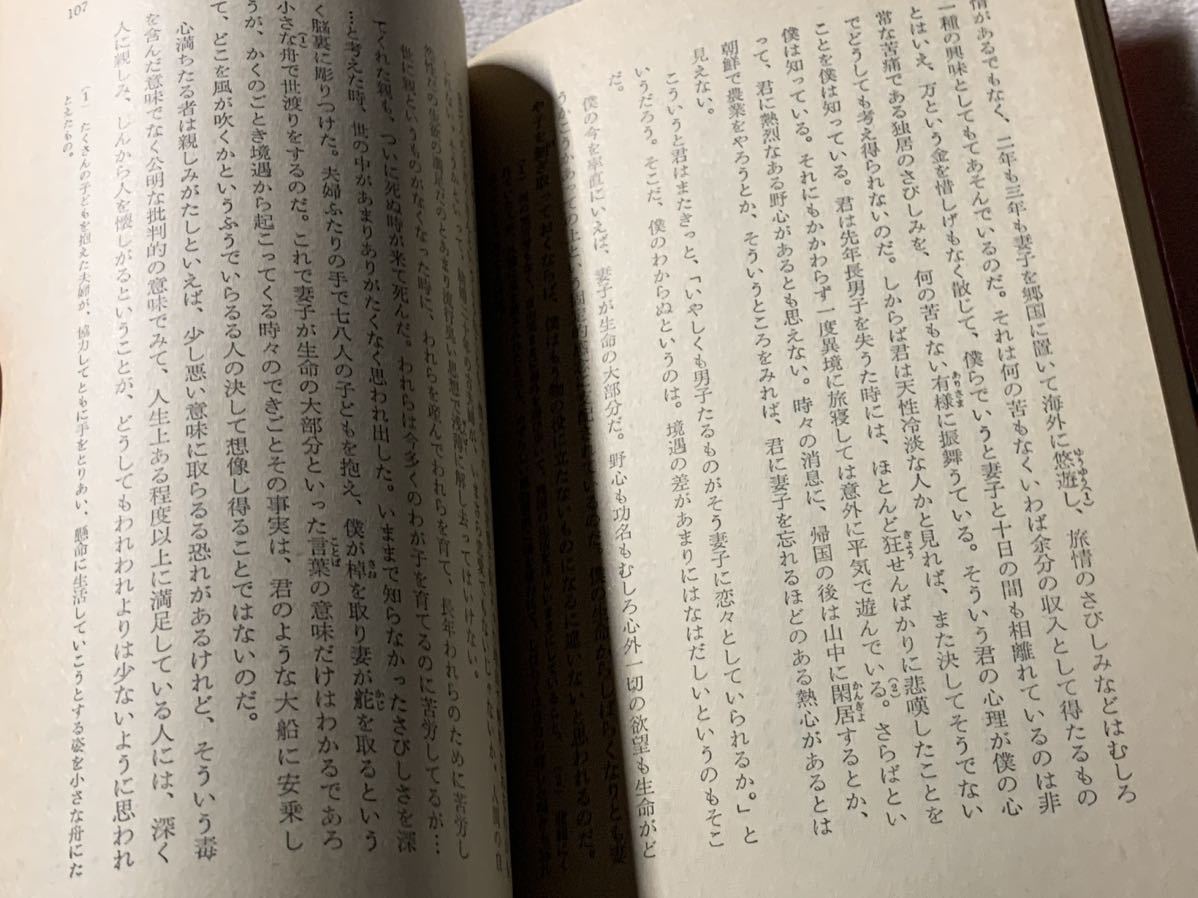 情があるでもなく、二年も三年も妻子を郷国に置いて海外に悠遊し、旅情のさびしみなどはむしろ
一種の興味としてもてあそんでいるのだ。それは何の苦もなくいわば余分の収入として得たるもの
とはいえ、万という金を惜しげもなく散じて、僕らでいうと妻子と十日の間も相離れているのは非
常な苦痛である独居のさびしみを、何の苦もない有様に振舞うている。そういう君の心理が僕の心
でどうしても考え得られないのだ。しからば君は天性冷淡な人かと見れば、また決してそうでない
ことを僕は知っている。君は先年長男子を失うた時には、ほとんど狂せんばかりに悲嘆したことを
僕は知っている。それにもかかわらず一度異境に旅寝しては意外に平気で遊んでいる。さらばとい
って、君に熱烈なある野心があるとも思えない。時々の消息に、帰国の後は山中に閑居するとか、
朝鮮で農業をやろうとか、そういうところをみれば、君に妻子を忘れるほどのある熱心があるとは
見えない。
こういうと君はまたきっと、「いやしくも男子たるものがそう妻子に恋々としていられるか。」と
いうだろう。そこだ、僕のわからぬというのは。境遇の差があまりにはなはだしいというのもそこ
だ。
僕の今を率直にいえば、妻子が生命の大部分だ。野心も功名もむしろ心外一切の欲望も生命がど
うかこうかあっての上という
っておくならば、僕はもう物の役に立たないものになるに違いないと思われるのだ。
世に親というものがなくなった時に、われらを産んでわれらを育て、長年われらのために苦労し
てくれた親も、ついに死ぬ時が来て死んだ。われらは今多くのわが子を育てるのに苦労してるが…
…と考えた時、世の中があまりありがたくなく思われ出した。いままで知らなかったさびしさを深
く脳裏に彫りつけた。夫婦ふたりの手で七八人の子どもを抱え、僕が棹を取り妻が舵を取るという
小さな舟で世渡りをするのだ。これで妻子が生命の大部分といった言葉の意味だけはわかるであろ
うが、かくのごとき境遇から起こってくる時々のできごととその事実は、君のような大船に安乗し
て、どこを風が吹くかというふうでいらるる人の決して想像し得ることではないのだ。
心満ちたる者は親しみがたしといえば、少し悪い意味に取らるる恐れがあるけれど、そういう毒
を含んだ意味でなく公明な批判的の意味でみて、人生上ある程度以上に満足している人には、深く
人に親しみ、しんから人を懐しがるということが、どうしてもわれわれよりは少ないように思われ
(1) たくさんの子どもを抱えた夫婦が、協力してともに手をとりあい、懸命に生活していこうとする姿を小さな舟にた
とえたもの。
107